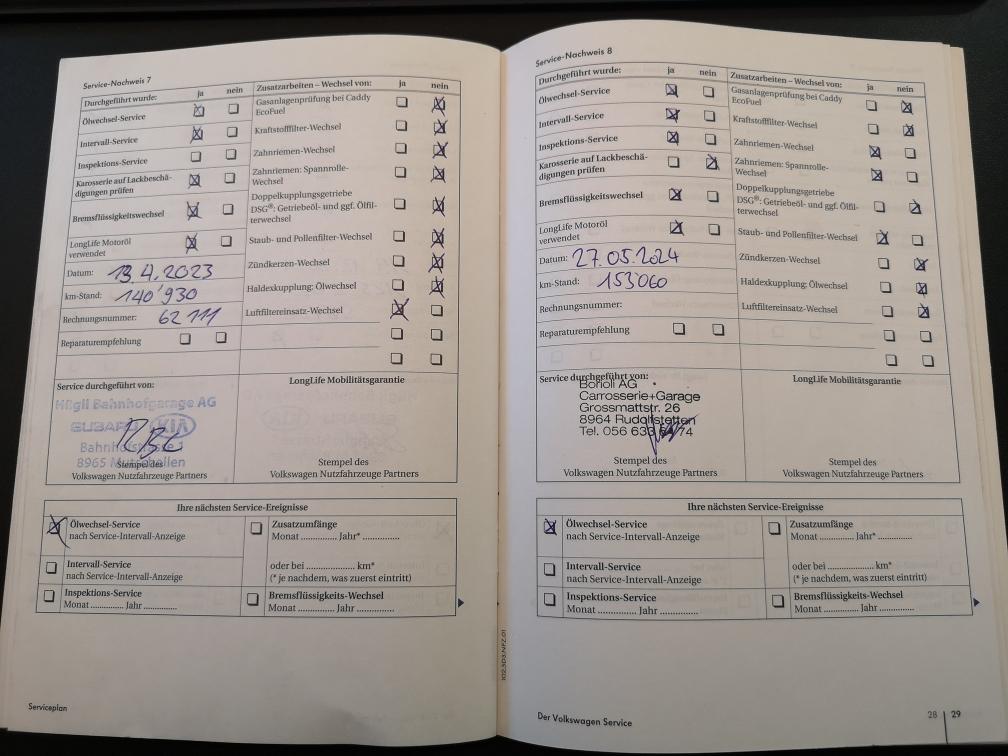 Service-Nachweis 7
Durchgeführt wurde: ja nein
Ölwechsel-Service
Intervall-Service
Inspektions-Service
Karosserie auf Lackbeschä-
digungen prüfen
Bremsflüssigkeitswechsel
LongLife Motoröl
verwendet
Datum: 13.4.2023
km-Stand: 140'930
Rechnungsnummer: 62111
Reparaturempfehlung
Zusatzarbeiten – Wechsel von: ja nein
Gasanlagenprüfung bei Caddy
EcoFuel
Kraftstofffilter-Wechsel
Zahnriemen-Wechsel
Zahnriemen: Spannrolle-
Wechsel
Doppelkupplungsgetriebe
DSG®: Getriebeöl- und ggf. Ölfil-
terwechsel
Staub- und Pollenfilter-Wechsel
Zündkerzen-Wechsel
Haldexkupplung: Ölwechsel
Luftfiltereinsatz-Wechsel
Service durchgeführt von:
Hügli Bahnhofgarage AG
SUBARU KIA
Bahnhofstrasse 1
8965 Mutschellen
Stempel des
Volkswagen Nutzfahrzeuge Partners
LongLife Mobilitätsgarantie
Stempel des
Volkswagen Nutzfahrzeuge Partners
Ihre nächsten Service-Ereignisse
Ölwechsel-Service
nach Service-Intervall-Anzeige
Intervall-Service
nach Service-Intervall-Anzeige
Inspektions-Service
Monat ............ Jahr ............
Zusatzumfänge
Monat ............ Jahr* ............
oder bei .................... km*
(* je nachdem, was zuerst eintritt)
Bremsflüssigkeits-Wechsel
Monat ............ Jahr ............
Serviceplan
102.5D3.NFZ.01
Service-Nachweis 8
Durchgeführt wurde: ja nein
Ölwechsel-Service
Intervall-Service
Inspektions-Service
Karosserie auf Lackbeschä-
digungen prüfen
Bremsflüssigkeitswechsel
LongLife Motoröl
verwendet
Datum: 27.05.2024
km-Stand: 153060
Rechnungsnummer:
Reparaturempfehlung
Zusatzarbeiten – Wechsel von: ja nein
Gasanlagenprüfung bei Caddy
EcoFuel
Kraftstofffilter-Wechsel
Zahnriemen-Wechsel
Zahnriemen: Spannrolle-
Wechsel
Doppelkupplungsgetriebe
DSG®: Getriebeöl- und ggf. Ölfil-
terwechsel
Staub- und Pollenfilter-Wechsel
Zündkerzen-Wechsel
Haldexkupplung: Ölwechsel
Luftfiltereinsatz-Wechsel
Service durchgeführt von:
AG
Carrosserie+Garage
Grossmattstr. 26
8964 Rudolfstetten
Tel. 056 633 74
Stempel des
Volkswagen Nutzfahrzeuge Partners
LongLife Mobilitätsgarantie
Stempel des
Volkswagen Nutzfahrzeuge Partners
Ihre nächsten Service-Ereignisse
Ölwechsel-Service
nach Service-Intervall-Anzeige
Intervall-Service
nach Service-Intervall-Anzeige
Inspektions-Service
Monat ............ Jahr ............
Zusatzumfänge
Monat ............ Jahr* ............
oder bei .................... km*
(* je nachdem, was zuerst eintritt)
Bremsflüssigkeits-Wechsel
Monat ............ Jahr ............
Der Volkswagen Service
28 29